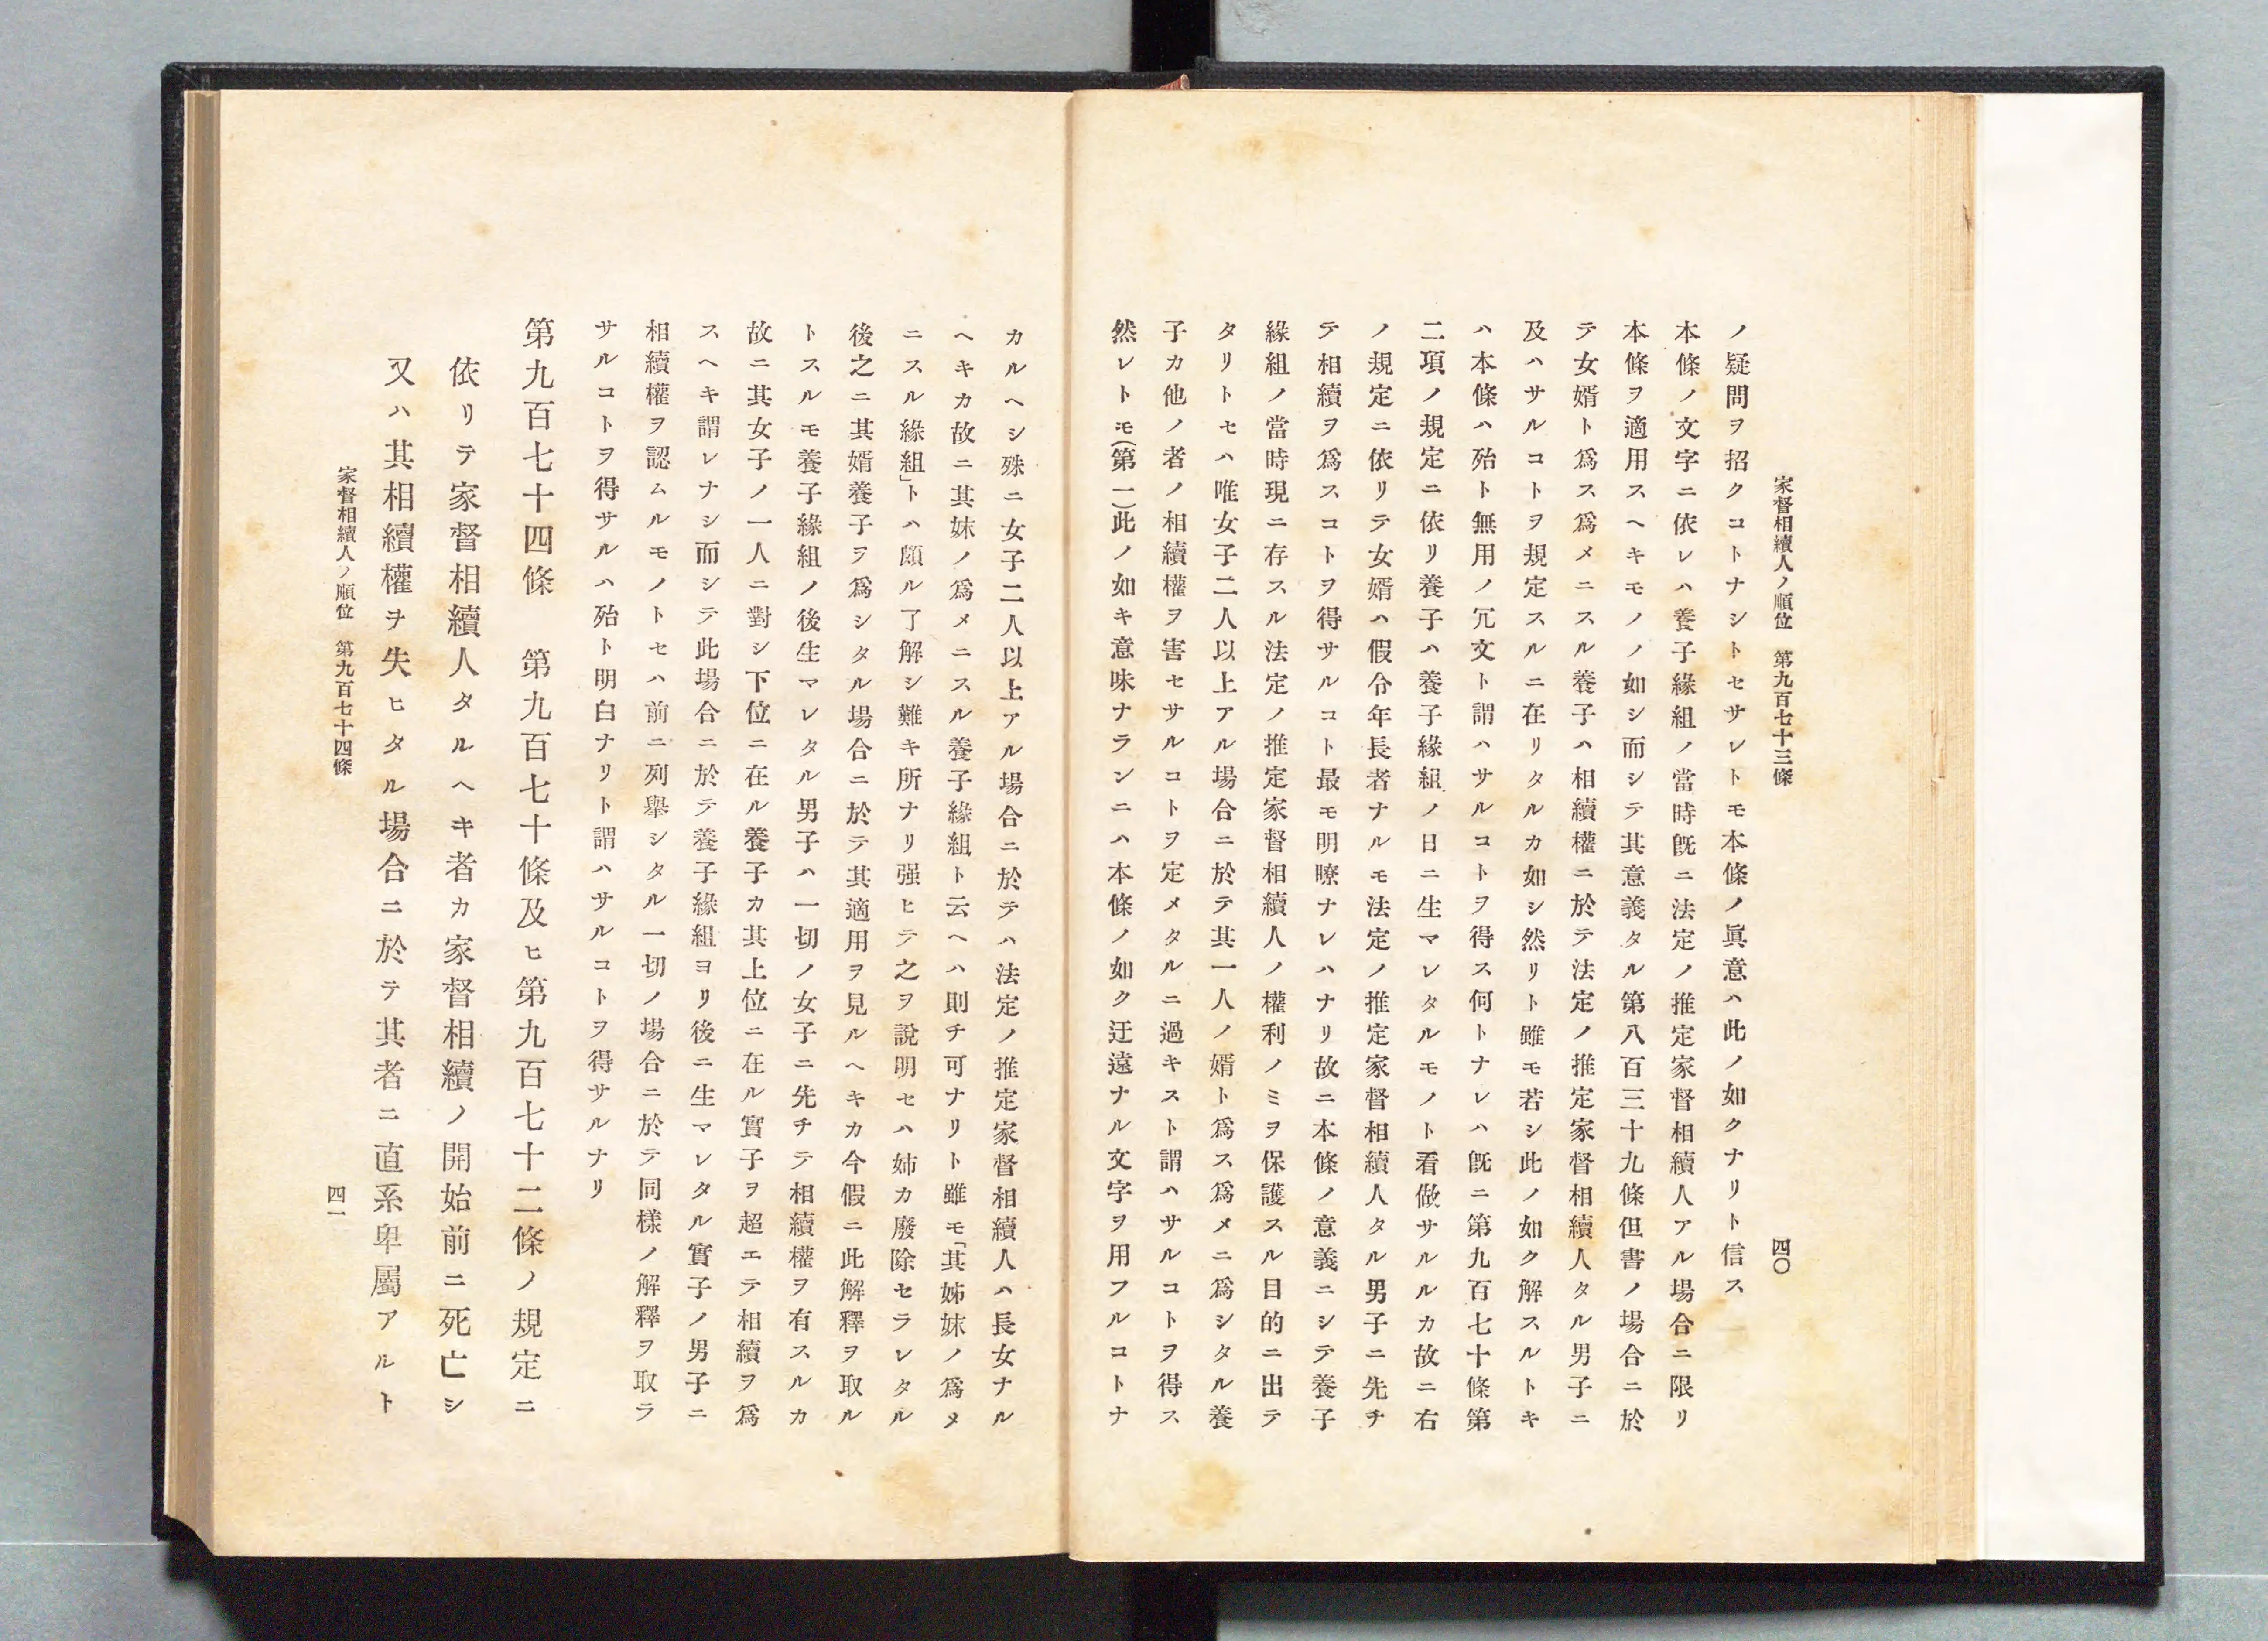 家督相續人ノ順位　第九百七十三條
四〇
ノ疑問ヲ招クコトナシトセサレトモ本條ノ眞意ハ此ノ如クナリト信ス
本條ノ文字ニ依レハ養子緣組ノ當時既ニ法定ノ推定家督相續人アル場合ニ限リ
本條ヲ適用スヘキモノノ如シ而シテ其意義タル第八百三十九條但書ノ場合ニ於
テ女婿ト爲ス爲メニスル養子ハ相續權ニ於テ法定ノ推定家督相續人タル男子ニ
及ハサルコトヲ規定スルニ在リタルカ如シ然リト雖モ若シ此ノ如ク解スルトキ
ハ本條ハ殆ト無用ノ冗文ト謂ハサルコトヲ得ス何トナレハ既ニ第九百七十條第
二項ノ規定ニ依リ養子ハ養子緣組ノ日ニ生マレタルモノト看做サルルカ故ニ右
ノ規定ニ依リテ女婿ハ假令年長者ナルモ法定ノ推定家督相續人タル男子ニ先チ
テ相續ヲ爲スコトヲ得サルコト最モ明瞭ナレハナリ故ニ本條ノ意義ニシテ養子
緣組ノ當時現ニ存スル法定ノ推定家督相續人ノ權利ノミヲ保護スル目的ニ出テ
タリトセハ唯女子二人以上アル場合ニ於テ其一人ノ婿ト爲ス爲メニ爲シタル養
子カ他ノ者ノ相續權ヲ害セサルコトヲ定メタルニ過キスト謂ハサルコトヲ得ス
然レトモ(第一)此ノ如キ意味ナランニハ本條ノ如ク迂遠ナル文字ヲ用フルコトナ
カルヘシ殊ニ女子二人以上アル場合ニ於テハ法定ノ推定家督相續人ハ長女ナル
ヘキカ故ニ其妹ノ爲メニスル養子緣組ト云ヘハ則チ可ナリト雖モ「其姊妹ノ爲メ
ニスル緣組」トハ頗ル了解シ難キ所ナリ强ヒテ之ヲ說明セハ姉カ廢除セラレタル
後之ニ其婿養子ヲ爲シタル場合ニ於テ其適用ヲ見ルヘキカ今假ニ此解釋ヲ取ル
トスルモ養子緣組ノ後生マレタル男子ハ一切ノ女子ニ先チテ相續權ヲ有スルカ
故ニ其女子ノ一人ニ對シ下位ニ在ル養子カ其上位ニ在ル實子ヲ超エテ相續ヲ爲
スヘキ謂レナシ而シテ此場合ニ於テ養子緣組ヨリ後ニ生マレタル實子ノ男子ニ
相續權ヲ認ムルモノトセハ前ニ列擧シタル一切ノ場合ニ於テ同樣ノ解釋ヲ取ラ
サルコトヲ得サルハ殆ト明白ナリト謂ハサルコトヲ得サルナリ
第九百七十四條　第九百七十條及ヒ第九百七十二條ノ規定ニ
依リテ家督相續人タルヘキ者カ家督相續ノ開始前ニ死亡シ
又ハ其相續權ヲ失ヒタル場合ニ於テ其者ニ直系卑屬アルト
家督相續人ノ順位　第九百七十四條
四一